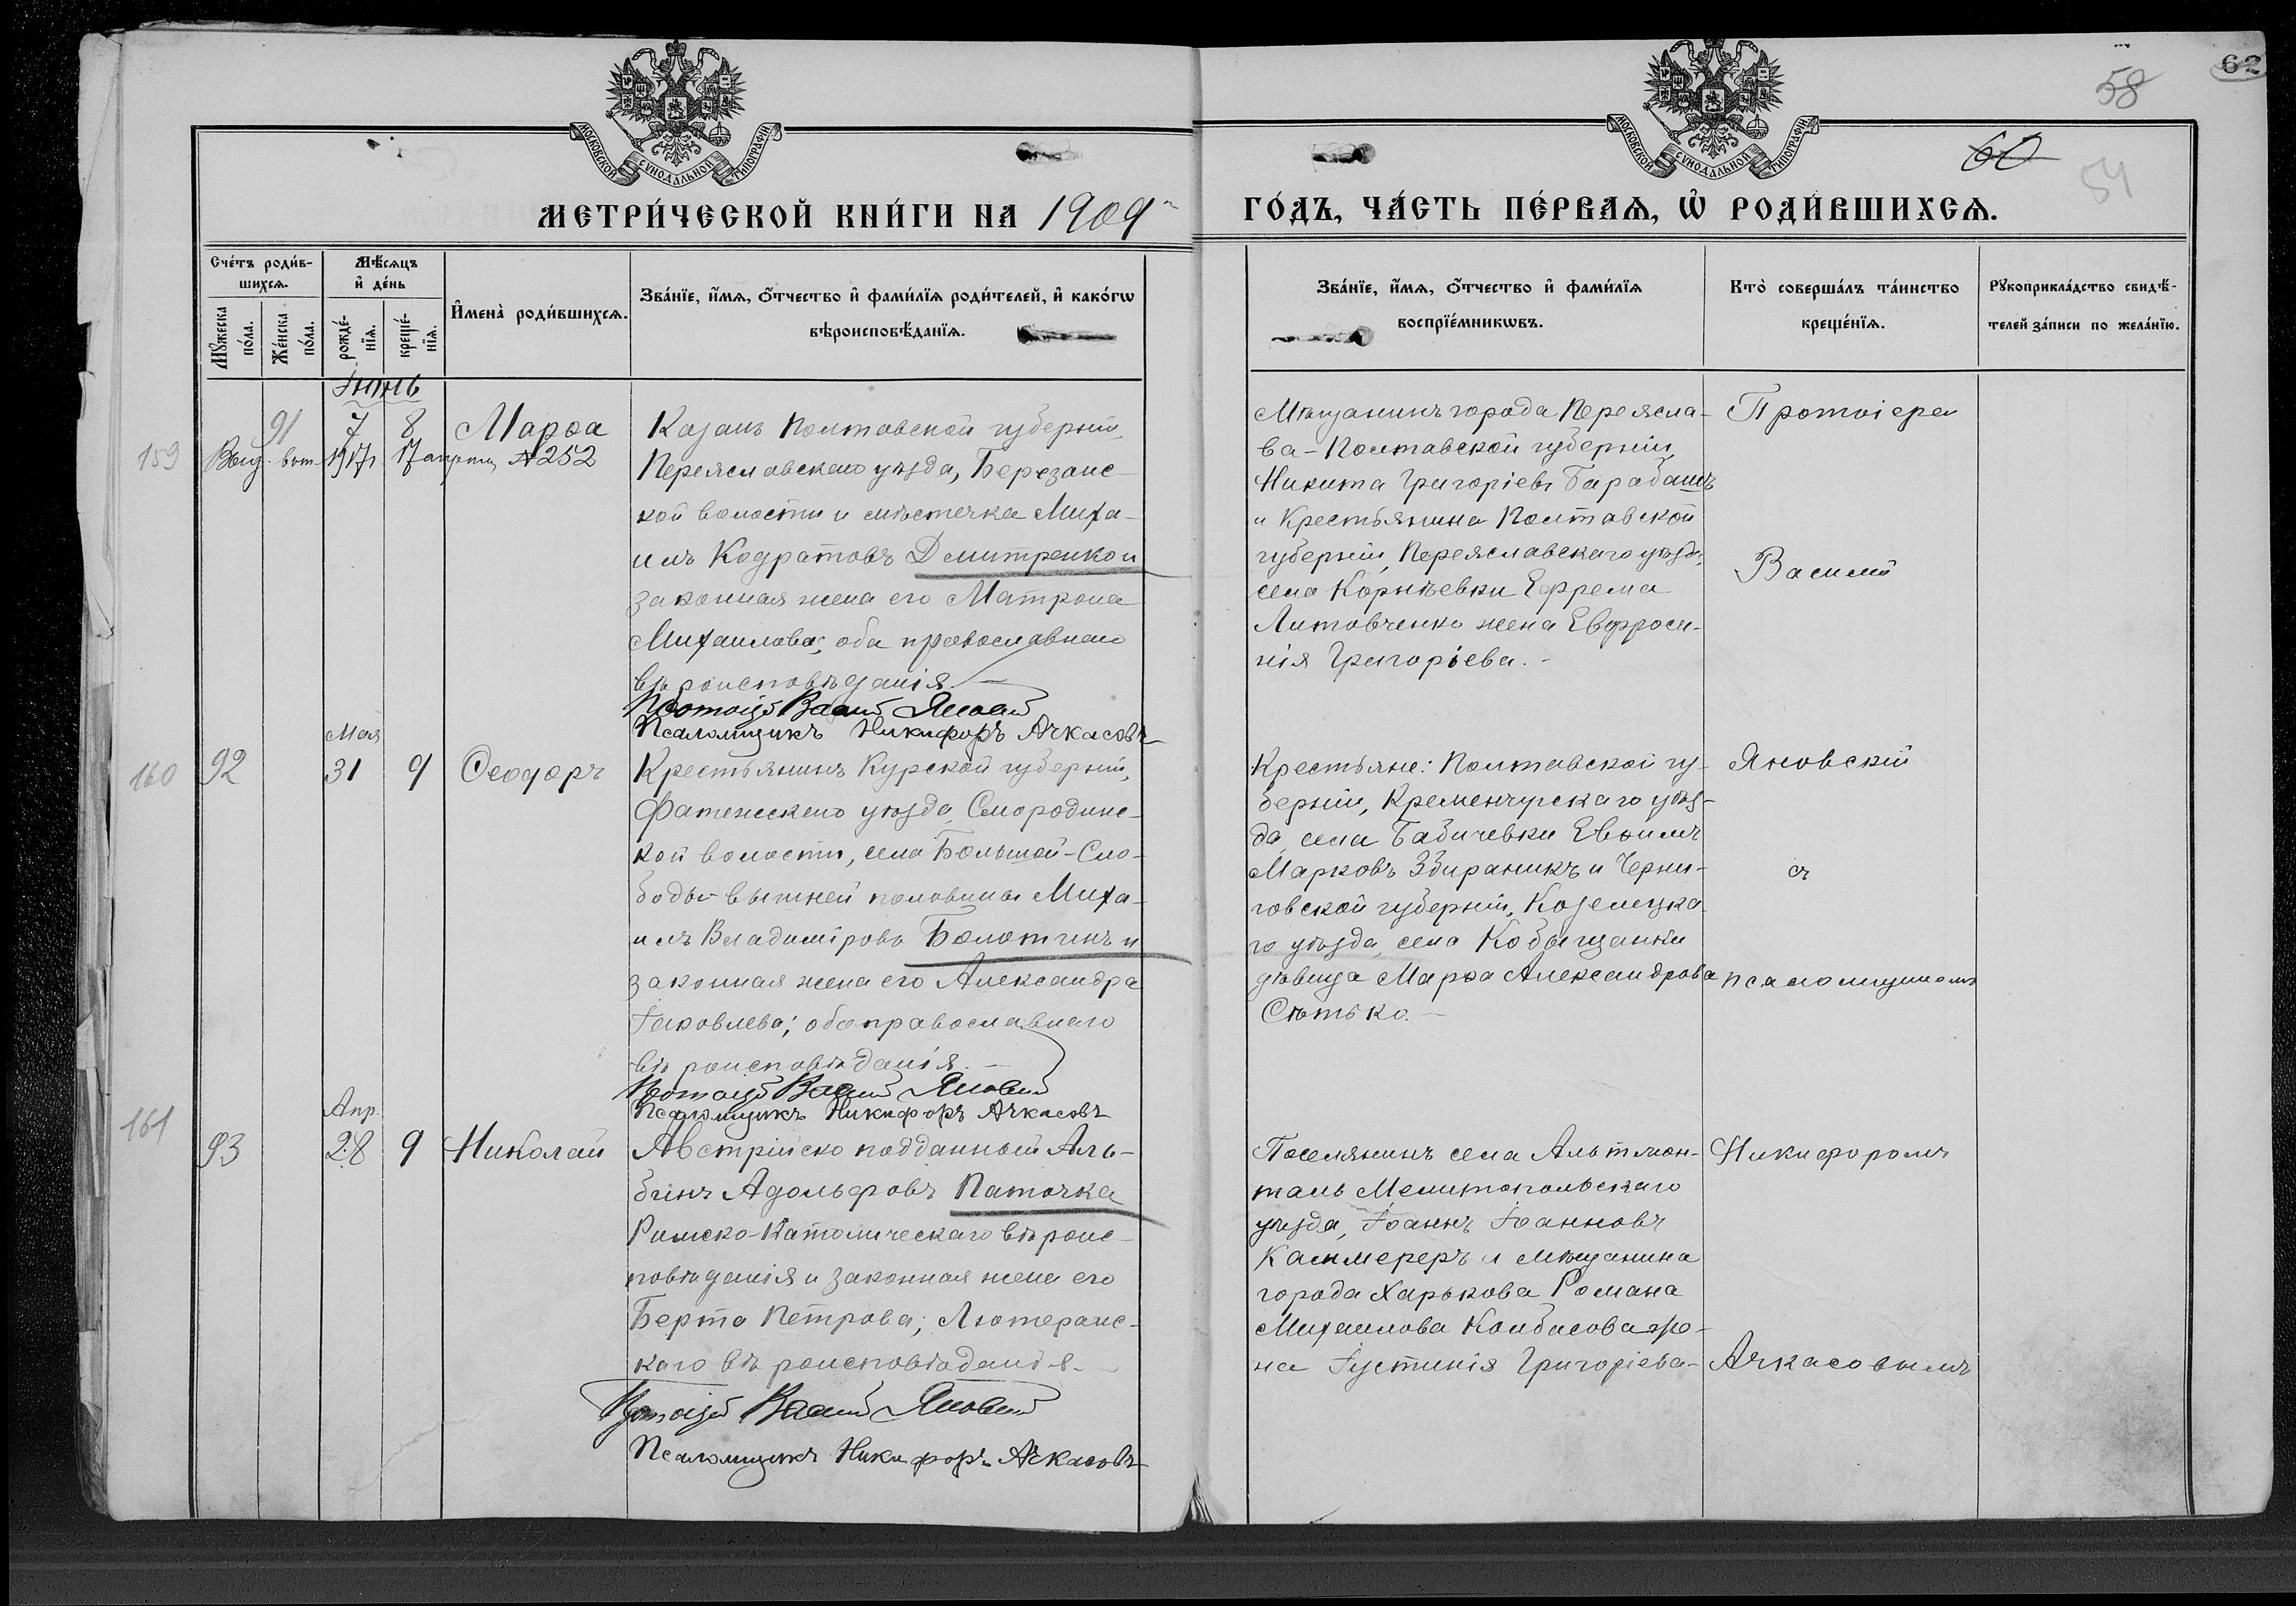 62
58
60
54
МОСКОВСКОЙ СѴНОДАЛЬНОЙ ТИПОГРАФІИ
МОСКОВСКОЙ СѴНОДАЛЬНОЙ ТИПОГРАФІИ
МЕТРИ́ЧЕСКОЙ КНИ́ГИ НА 1909
ГО́ДЪ, ЧА́СТЬ ПЕ́РВАѦ, Ѽ РОДИ́ВШИХСѦ.
Сче́тъ роди́в-
шихсѧ.
Мꙋжеска по́ла.
Же́нска по́ла.
Мѣ́сѧцъ
и҆ де́нь
рожде́-
нїѧ.
креще́-
нїѧ.
И҆мена̀ роди́вшихсѧ.
Зва́нїе, и҆́мѧ, ѻ҆́тчество и҆ фами́лїѧ роди́телей, и҆ како́гѡ
вѣроисповѣ́данїѧ.
Зва́нїе, и҆́мѧ, ѻ҆́тчество и҆ фами́лїѧ
воспрїе́мникѡвъ.
Кто̀ соверша́лъ та́инство
креще́нїѧ.
Рꙋкоприкла́дство свидѣ́-
телей за́писи по жела́нїю.
Іюнь
159
91
7
8
Марѳа
Выд. вып. 1917 г. 17 апрѣля №252
Казакъ Полтавской губерніи,
Переяславскаго уѣзда, Березанс-
кой волости и мѣстечка Миха-
илъ Кодратовъ Дмитренко и
законная жена его Матрона
Михаилова; оба православнаго
вѣроисповѣданія. —
Протоіер. Василій Яновскій
Псаломщикъ Никифоръ Ачкасовъ
Мѣщанинъ города Переясла-
ва - Полтавской губерніи,
Никита Григоріевъ Барабашъ
и Крестьянина Полтавской
губерніи, Переяславскаго уѣзда,
села Корнѣевки Ефрема
Литовченко жена Евфроси-
нія Григоріева. -
Протоіерей
Василій
Мая
160
92
31
9
Ѳеодоръ
Крестьянинъ Курской губерніи,
Фатежскаго уѣзда, Смородинс-
кой волости, села Большой-Сло-
боды вышней половины Миха-
илъ Владиміровъ Болотинъ и
законная жена его Александра
Іаковлева; оба православнаго
вѣроисповѣданія. —
Протоіер. Василій Яновскій
Псаломщикъ Никифоръ Ачкасовъ
Крестьяне: Полтавской гу-
берніи, Кременчугскаго уѣз-
да, села Бабичевки Евѳимъ
Марковъ Збираникъ и Черни-
говской губерніи, Козелецка-
го уѣзда, села Кобыжчанки
дѣвица Марѳа Александрова
Сѣтько. —
Яновскій
съ
псаломщикомъ
Апр.
161
93
28
9
Николай
Австрійско подданный Аль-
бинъ Адольфовъ Паточка
Римско-Католическаго вѣроис-
повѣданія и законная жена его
Берта Петрова; Лютеранс-
каго вѣроисповѣданія.
Протоіер. Василій Яновскій
Псаломщикъ Никифоръ Ачкасовъ
Поселянинъ села Альтмон-
таль Мелитопольскаго
уѣзда, Іоаннъ Іоанновъ
Каммереръ и мѣщанина
города Харькова Романа
Михаилова Колбасова же-
на Іустинія Григоріева -
Никифоромъ
Ачкасовымъ